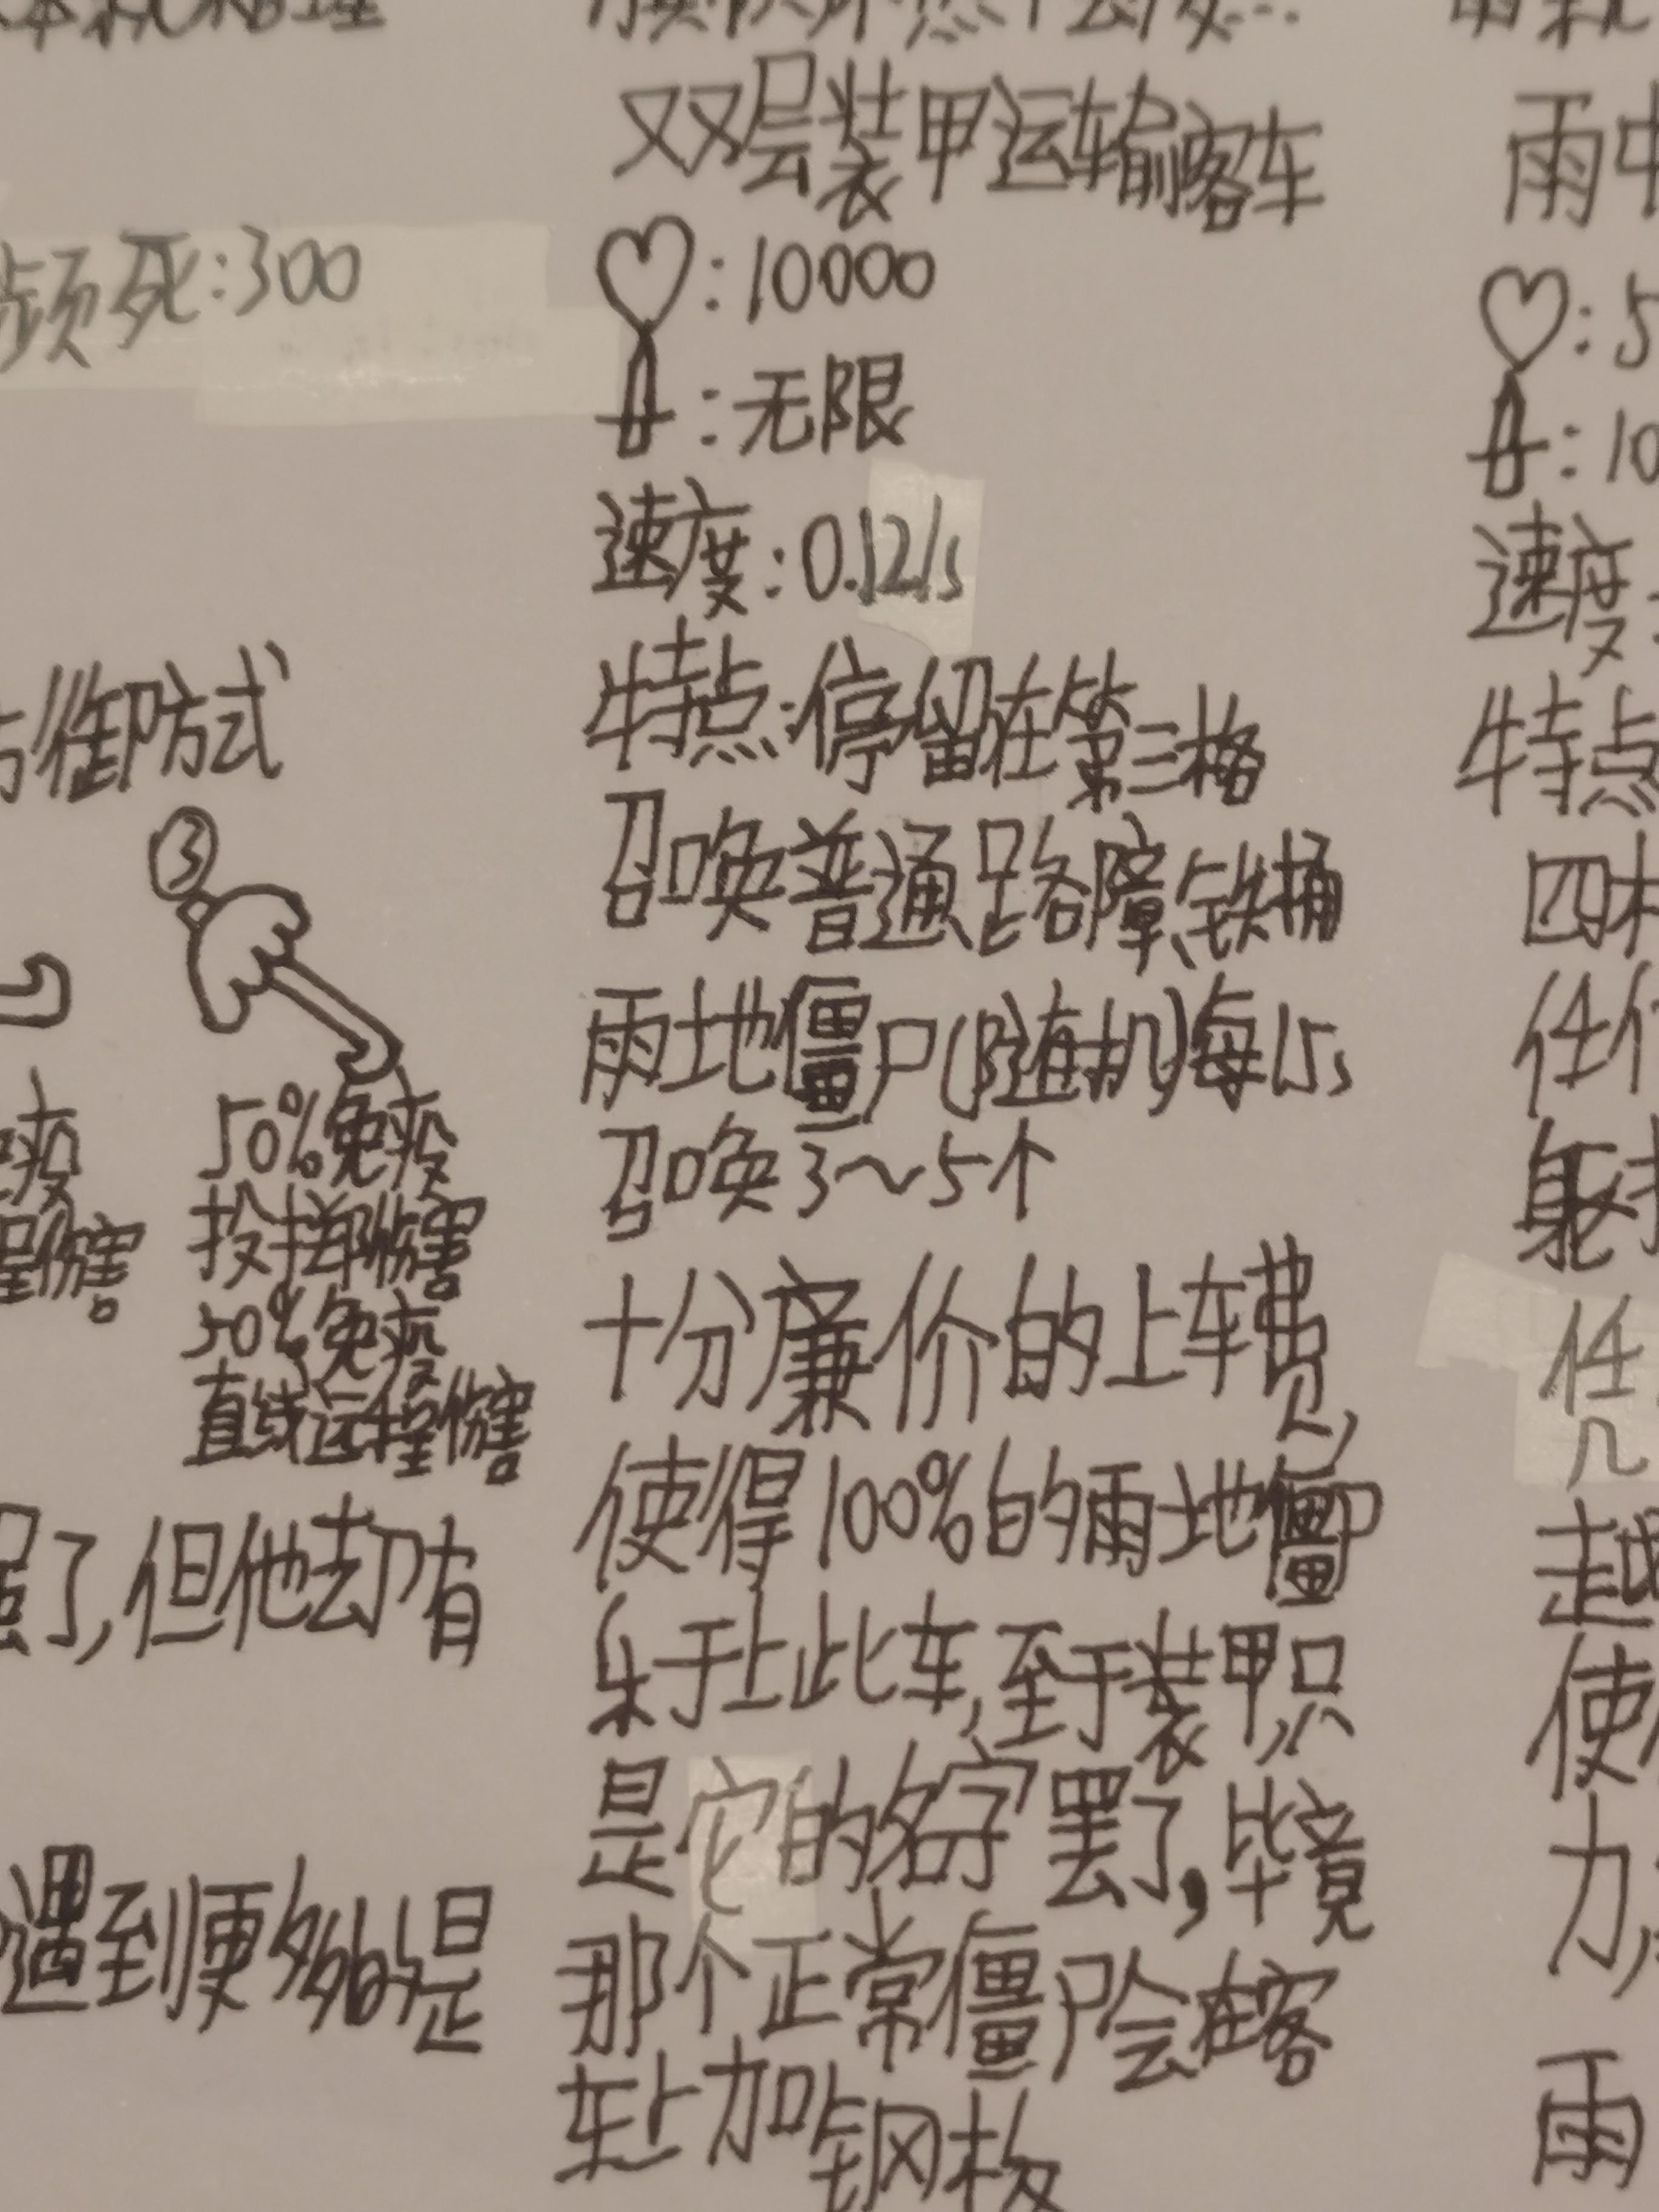 双层装甲运输客车
:10000
:无限
速度:0.12/s
特点:停留在第三格
召唤普通、路障、铁桶
雨地僵尸(随机)每15s
召唤3~5个
十分廉价的上车费,
使得100%的雨地僵尸
乐于上此车,至于装甲,只
是它的名字罢了,毕竟
那个正常僵尸会在客
车上加钢板
死:300
御方式
③
50%免疫
投掷伤害
50%免疫
直线远程伤害
了,但他却有
遇到便多的是
雨中
:5
:10
速度:
特点
四
任
任
几
越
使
力,
雨